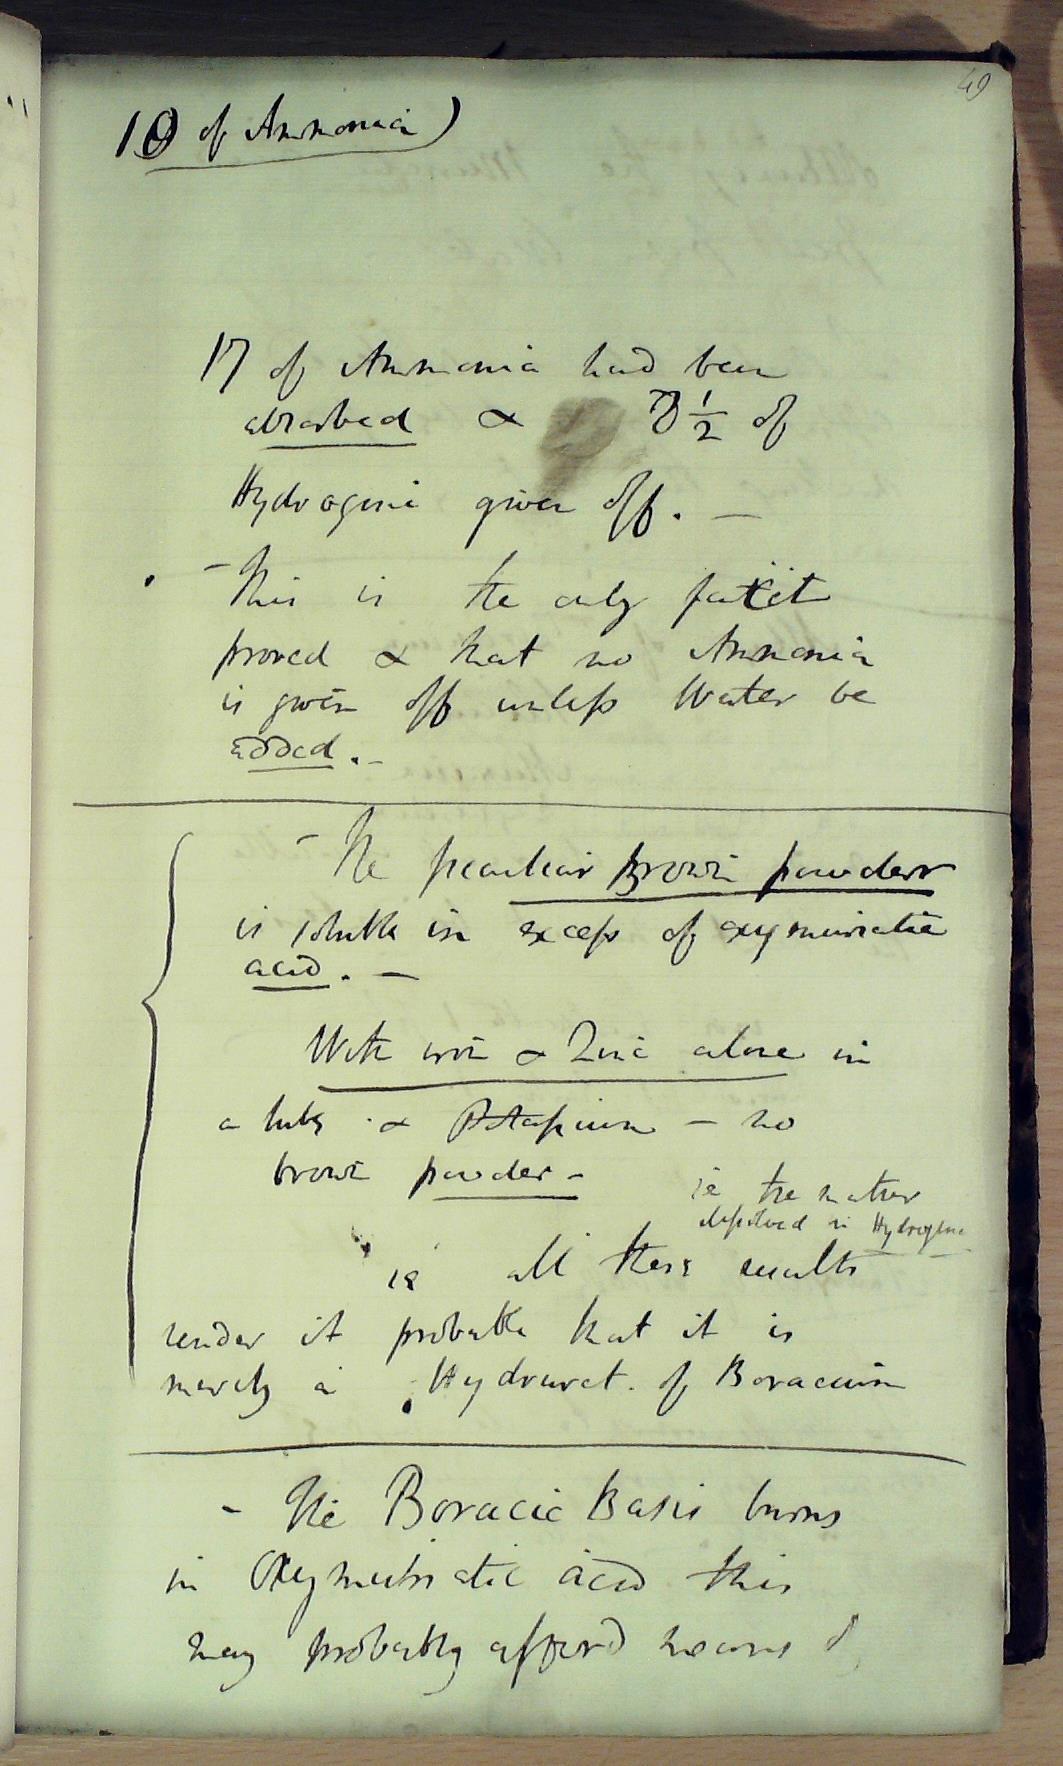 49
10 of Ammonia)
17 of Ammonia had been
absorbed & 8 1/2 of
Hydrogene given off. —
- This is the only fact
proved & that no Ammonia
is given off unless Water be
added. -
- The peculiar Brown powder
is soluble in excess of oxymuriatic
acid. —
With iron & Zinc alone in
a tube & Potassium - no
brown powder -
ie the matter
dissolved in Hydrogene
ie all these results
render it probable that it is
merely a Hydruret. of Boracium
- The Boracic Basis burns
in Oxymuriatic acid this
may probably afford means of